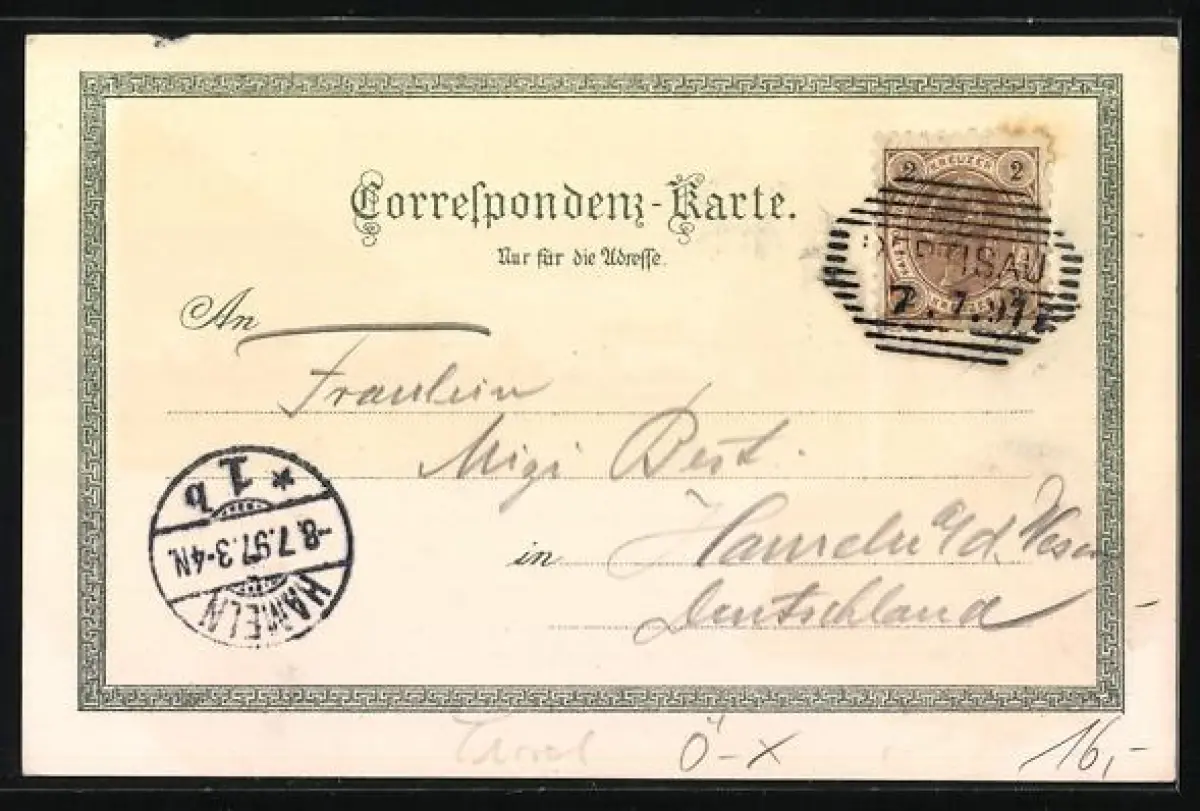 Correspondenz-Karte.
Nur für die Adresse.
2 KREUZER 2
PERTISAU
2 2
7.7.97
An
Fräulein
Migi Best.
in Hameln a/d. Weser
Deutschland
* 1 b
-8.7.97.3-4N.
HAMELN
Tirol Ö-X 16,-